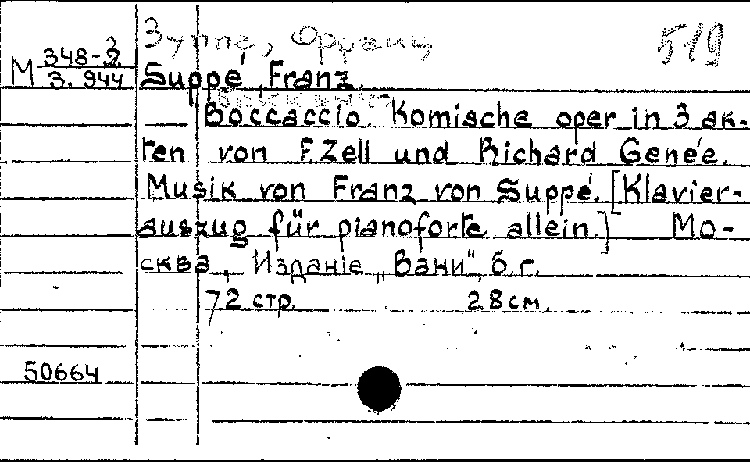 Зуппе, Франц
519
М 348-2
3
3. 944
Suppé, Franz
Boccaccio. Komische oper in 3 ak-
ten von F. Zell und Richard Genée.
Musik von Franz von Suppé. [Klavier-
auszug für pianoforte allein.] Мо-
сква, Изданіе „Вани“, б. г.
72 стр. 28 см.
50664